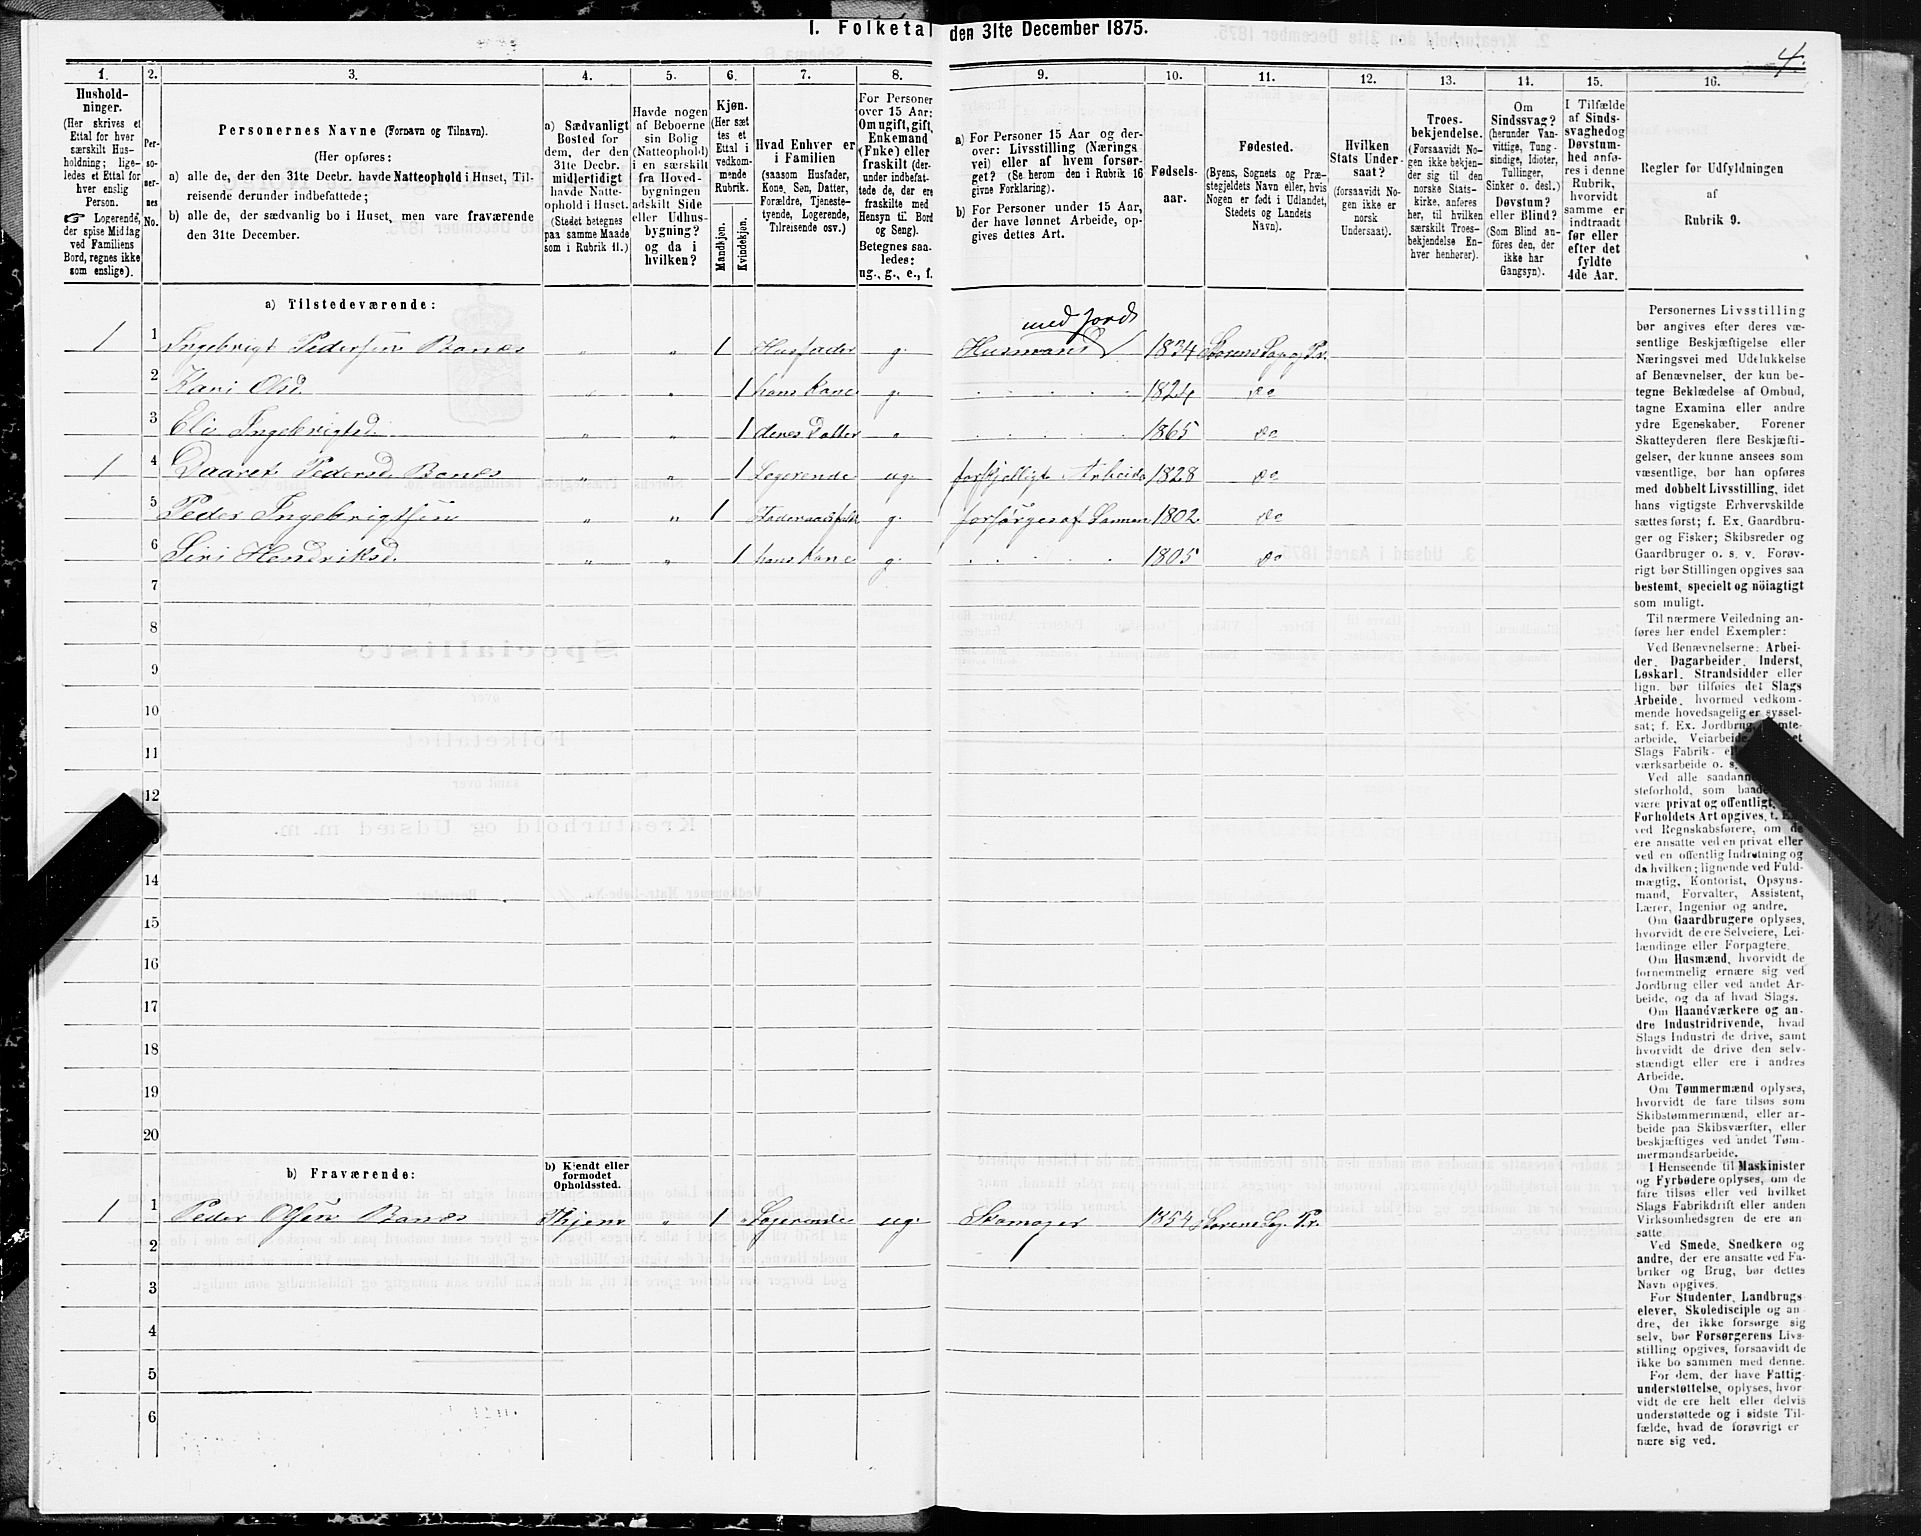 1. Folketal den 31te December 1875.
4.
1. 2. 3. 4. 5. 6. 7. 8. 9. 10. 11. 12. 13. 14. 15. 16.
Hushold-
ninger.
(Her skrives et
Ettal for hver
særskilt Hus-
holdning; lige-
ledes et Ettal for
hver enslig
Person.
☞ Logerende,
der spise Middag
ved Familiens
Bord, regnes ikke
som enslige).
Per-
so-
ner-
nes
No.
Personernes Navne (Fornavn og Tilnavn).
(Her opføres:
a) alle de, der den 31te Decbr. havde Natteophold i Huset, Til-
reisende derunder indbefattede;
b) alle de, der sædvanlig bo i Huset, men vare fraværende
den 31te December.
a) Sædvanligt
Bosted for
dem, der den
31te Decbr.
midlertidigt
havde Natte-
ophold i Huset.
(Stedet betegnes
paa samme Maade
som i Rubrik 11.)
Havde nogen
af Beboerne
sin Bolig
(Natteophold)
i en særskilt
fra Hoved-
bygningen
adskilt Side
eller Udhus-
bygning?
og da i
hvilken?
Kjøn.
(Her sæt
tes et
Ettal i
vedkom-
mende
Rubrik.
Mandkjøn.
Kvindekjøn.
Hvad Enhver er
i Familien
(saasom Husfader,
Kone, Søn, Datter,
Forældre, Tjeneste-
tyende, Logerende,
Tilreisende osv.)
For Personer
over 15 Aar:
Om ugift, gift,
Enkemand
(Enke) eller
fraskilt (der-
under indbefat-
tede de, der ere
fraskilte med
Hensyn til Bord
og Seng).
Betegnes saa-
ledes:
ug., g., e., f.
a) For Personer 15 Aar og der-
over: Livsstilling (Nærings
vei) eller af hvem forsør-
get? (Se herom den i Rubrik 16
givne Forklaring).
b) For Personer under 15 Aar,
der have lønnet Arbeide, op-
gives dettes Art.
Fødsels-
aar.
Fødested.
(Byens, Sognets og Præ-
stegjeldets Navn eller, hvis
Nogen er født i Udlandet,
Stedets og Landets
Navn).
Hvilken
Stats Under-
saat?
(forsaavidt No-
gen ikke er
norsk
Undersaat).
Troes-
bekjendelse.
(Forsaavidt No-
gen ikke bekjen-
der sig til den
norske Stats-
kirke, anføres
her, til hvilken
særskilt Troes-
bekjendelse En-
hver henhører).
Om
Sindssvag?
(herunder Van-
vittige, Tung-
sindige, Idioter,
Tullinger,
Sinker o. desl.)
Døvstum?
eller Blind?
(Som Blind an-
føres den, der
ikke har
Gangsyn).
I Tilfælde
af Sinds-
svaghed og
Døvstum-
hed anfø-
res i denne
Rubrik,
hvorvidt
samme er
indtraadt
før eller
efter det
fyldte
4de Aar.
Regler for Udfyldningen
af
Rubrik 9.
a) Tilstedeværende:
med Jord
1 1 Ingebrigt Pedersen Bones " " 1 Husfader g. Husmand 1834 Størens Sogn og Pr.
2 Kari Olsd. " " 1 hans Kone g. 1824 do
3 Eli Ingebrigtsd. " " 1 deres Datter " 1865 do
1 4 Maaret Pedersd. Bones " " 1 Logerende ug. forskjelligt Arbeide 1828 do
5 Peder Ingebrigtsen " " 1 Føderaadsfolk g. forsørges af Sønnen 1802 do
6 Siri Hendriksd. " " 1 hans Kone g. 1805 do
7
8
9
10
11
12
3
14
15
16
17
18
19
20
b) Fraværende:
b) Kjendt eller
formodet
Opholdssted.
1 1 Peder Olsen Bones " 1 Logerende ug. Skomager 1854 Størens Sog. Pr.
2
3
4
5
6
Personernes Livsstilling
bør angives efter deres væ-
sentlige Beskjæftigelse eller
Næringsvei med Udelukkelse
af Benævnelser, der kun be-
tegne Beklædelse af Ombud,
tagne Examina eller andre
ydre Egenskaber. Forener
Skatteyderen flere Beskjæfti-
gelser, der kunne ansees som
væsentlige, bør han opføres
med dobbelt Livsstilling, idet
hans vigtigste Erhvervskilde
sættes først; f. Ex. Gaardbru-
ger og Fisker; Skibsreder og
Gaardbruger o. s. v. Forøv-
rigt bør Stillingen opgives saa
bestemt, specielt og nöiagtigt
som muligt.
Til nærmere Veiledning an-
føres her endel Exempler:
Ved Benævnelserne: Arbei-
der, Dagarbeider, Inderst,
Løskarl, Strandsidder eller
lign. bør tilføies det Slags
Arbeide, hvormed vedkom-
mende hovedsagelig er syssel-
sat; f. Ex. Jordbrug,
arbeide, Veiarbeide,
Slags Fabrik-
værksarbeide o. s.
Ved alle saadan
steforhold, som baade
være privat og offentligt,
Forholdets Art opgives, t. Ex.
ved Regnskabsførere, om de
ere ansatte ved en privat eller
ved en offentlig Indretning og
da hvilken; lignende ved Fuld-
mægtig, Kontorist, Opsyns-
mand, Forvalter, Assistent,
Lærer, Ingeniør og andre.
Om Gaardbrugere oplyses,
hvorvidt de ere Selveiere, Lei-
lændinge eller Forpagtere.
Om Husmænd, hvorvidt de
fornemmelig ernære sig ved
Jordbrug eller ved andet Ar-
beide, og da af hvad Slags.
Om Haandværkere og an-
dre Industridrivende, hvad
Slags Industri de drive, samt
hvorvidt de drive den selv-
stændigt eller ere i andres
Arbeide.
Om Tømmermænd oplyses,
hvorvidt de fare tilsøs som
Skibstømmermænd, eller ar-
beide paa Skibsværfter, eller
beskjæftiges ved andet Tøm-
mermandsarbeide.
I Henseende til Maskinister
og Fyrbødere oplyses, om de
fare tilsøs eller ved hvilket
Slags Fabrikdrift eller anden
Virksomhedsgren de ere an-
satte.
Ved Smede, Snedkere og
andre, der ere ansatte ved Fa-
briker og Brug, bør dettes
Navn opgives.
For Studenter, Landbrugs-
elever, Skoledisciple og an-
dre, der ikke forsørge sig
selv, bør Forsørgerens Livs-
stilling opgives, forsaavidt de
ikke bo sammen med denne.
For dem, der have Fattig-
understøttelse, oplyses, hvor-
vidt de ere helt eller delvis
understøttede og i sidste Til-
fælde, hvad de forøvrigt er-
nære sig ved.